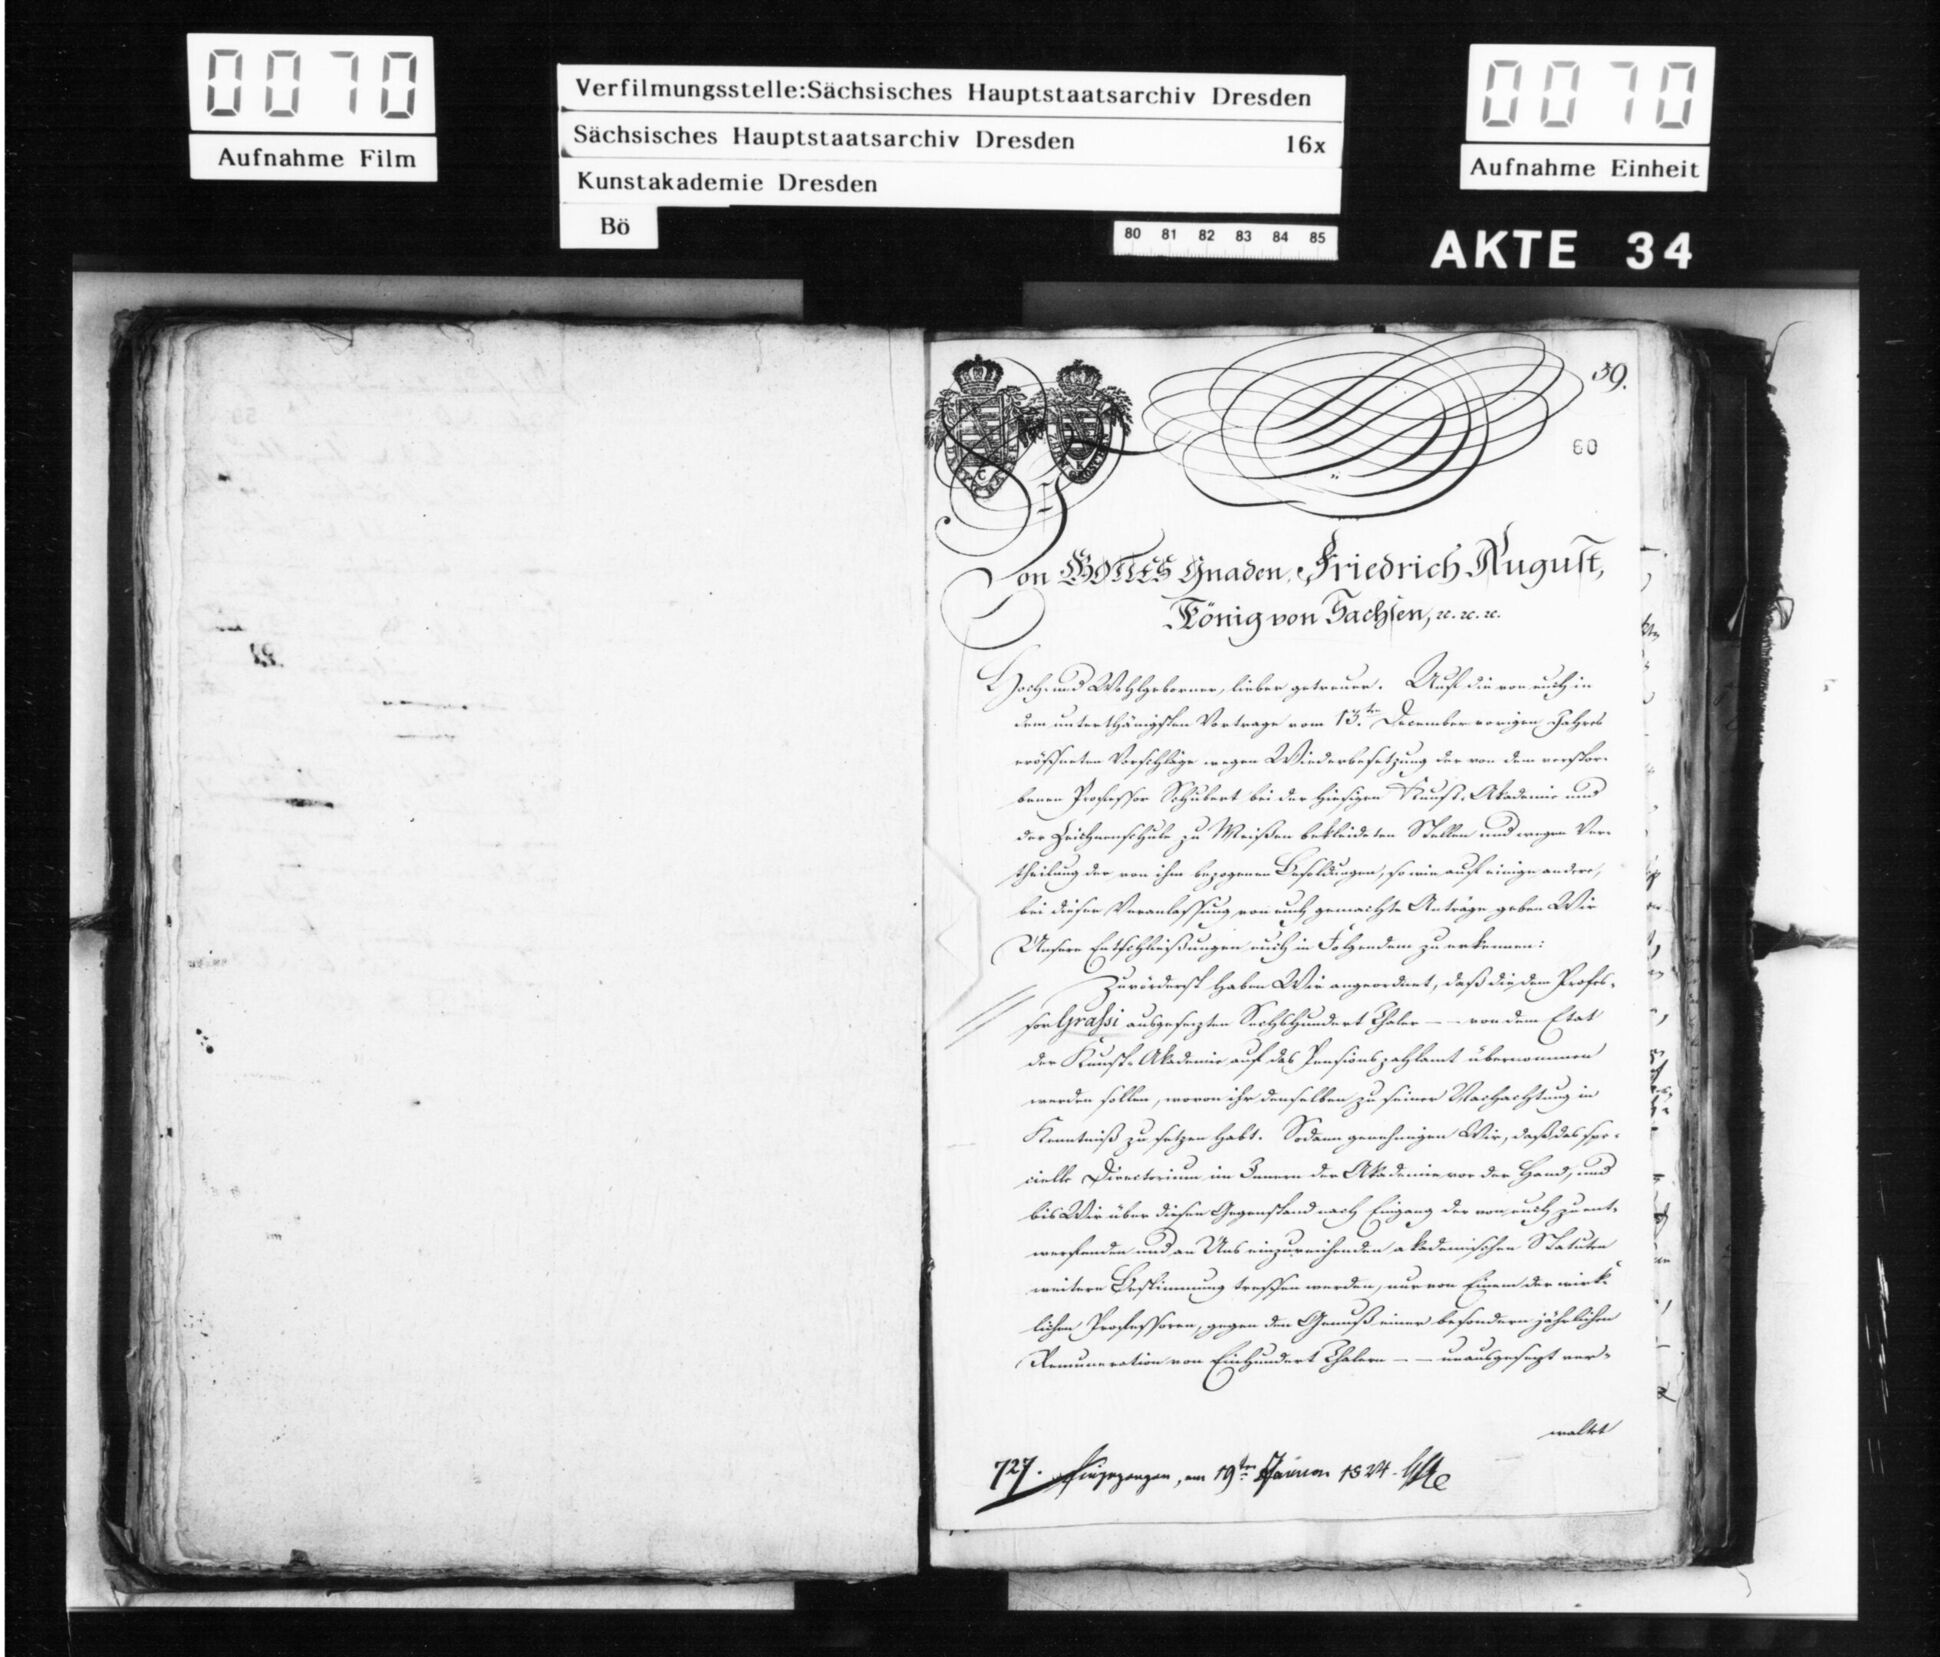 0070
Aufnahme Film
Verfilmungsstelle:Sächsisches Hauptstaatsarchiv Dresden
Sächsisches Hauptstaatsarchiv Dresden 16x
Kunstakademie Dresden
Bö
80 81 82 83 84 85
0070
Aufnahme Einheit
AKTE 34
39.
60
Von GOTTES Gnaden, Friedrich August,
König von Sachsen, ꝛc. ꝛc. ꝛc.
Hoch- und Wohlgeborner, lieber getreuer. Auf die von euch in
dem unterthänigsten Vortrage vom 13.ten December vorigen Jahres
eröffneten Vorschläge wegen Wiederbesetzung der von dem verstor-
benen Professor Schubert bei der hiesigen Kunst-Akademie und
der Zeichnenschule zu Meißen bekleideten Stellen und wegen Ver-
theilung der von ihm bezogenen Besoldungen, so wie auf einige andere,
bei dieser Veranlassung von euch gemachte Anträge geben Wir
Unsere Entschließungen euch in Folgendem zu erkennen:
Zuvörderst haben Wir angeordnet, daß die dem Profes-
sor Grassi ausgesezten Sechshundert Thaler -- von dem Etat
der Kunst-Akademie auf das Pensionszahlamt übernommen
werden sollen, wovon ihr denselben zu seiner Nachachtung in
Kenntniß zu setzen habt. Sodann genehmigen Wir, daß das spe-
cielle Directorium im Innern der Akademie vor der Hand, und
bis Wir über diesen Gegenstand nach Eingang der von euch zu ent-
werfenden und an Uns einzureichenden akademischen Statuten
weitere Bestimmung treffen werden, nur von Einem der wirk-
lichen Professoren, gegen den Genuß einer besondern jährlichen
Remuneration von Einhundert Thalern -- unausgesezt ver-
waltet
727. Eingegangen, am 19ten Januar 1824.